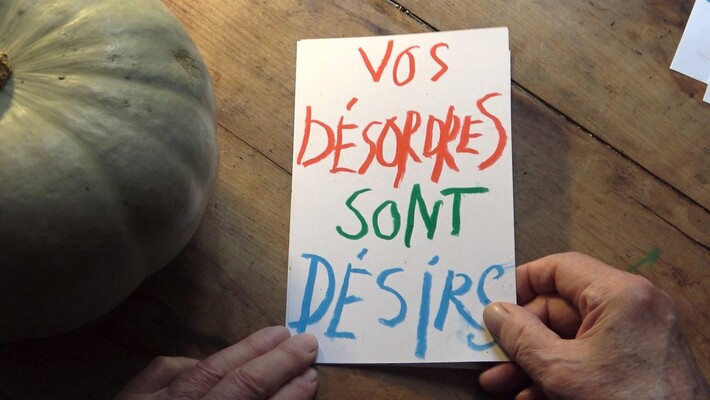 VOS
DÉSORDRES
SONT
DÉSÍRS